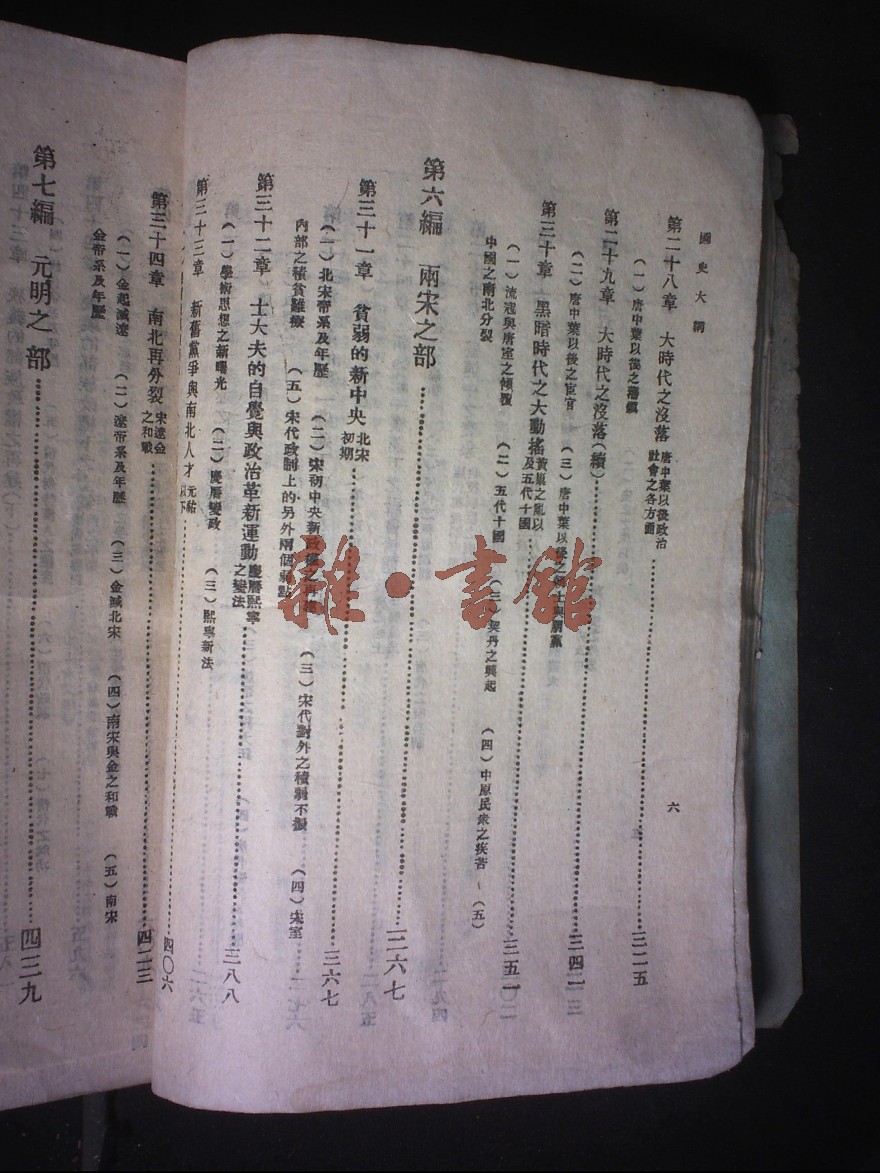 國史大綱
六
第二十八章 大時代之沒落 唐中葉以後政治社會之各方面……三二五
（一）唐中葉以後之藩鎮
第二十九章 大時代之沒落（續）……三四一
（二）唐中葉以後之宦官 （三）唐中葉以後之朝士與朋黨
第三十章 黑暗時代之大動搖 黃巢之亂以及五代十國……三五一
（一）流寇與唐室之傾覆 （二）五代十國 （三）契丹之興起 （四）中原民衆之疾苦 （五）
中國之南北分裂
第六編 兩宋之部……三六七
第三十一章 貧弱的新中央 北宋初期……三六七
（一）北宋帝系及年歷 （二）宋初中央新政權之 （三）宋代對外之積弱不振 （四）宋室
內部之積貧難療 （五）宋代政制上的另外兩個弱點
第三十二章 士大夫的自覺與政治革新運動 慶曆熙寧之變法……三八八
（一）學術思想之新曙光 （二）慶曆變政 （三）熙寧新法
第三十三章 新舊黨爭與南北人才 元祐以下……四〇六
第三十四章 南北再分裂 宋遼金之和戰……四二三
（一）金起滅遼 （二）遼帝系及年歷 （三）金滅北宋 （四）南宋與金之和戰 （五）南宋
金帝系及年歷
第七編 元明之部……四三九
雜·書館